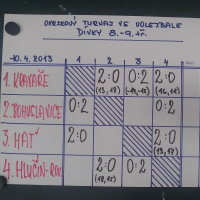 OKRSKOVÝ TURNAJ VE VOLEJBALE
DÍVKY 8.-9. tř.
10.4.2013 1 2 3 4
1. KRAVAŘE 2:0 0:2 2:0
(13,13) (-14,-16) (16,12)
2. BOHUSLAVICE 0:2 0:2
3. HAŤ 2:0 2:0
(13,17)
4. HLUČÍN-ROV. 2:0 0:2
(18,12)